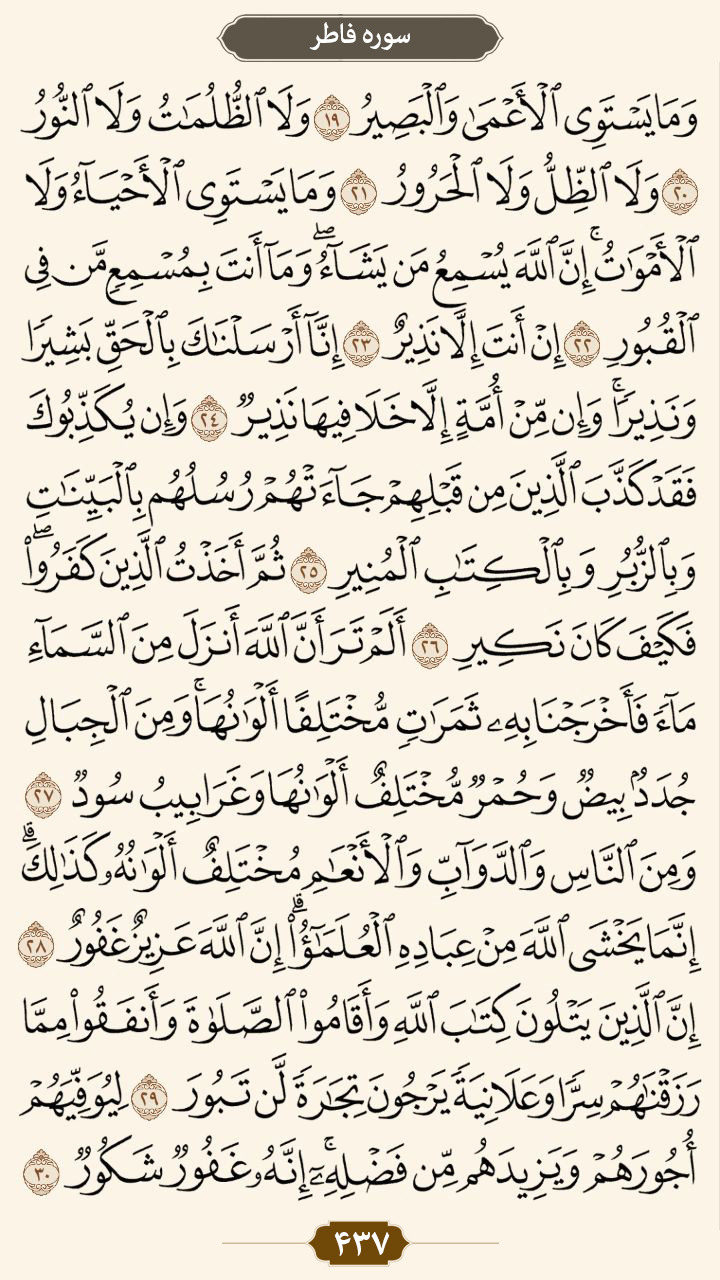 سوره فاطر
وَمَا يَسْتَوِى ٱلْأَعْمَىٰ وَٱلْبَصِيرُ ١٩ وَلَا ٱلظُّلُمَٰتُ وَلَا ٱلنُّورُ
٢٠ وَلَا ٱلظِّلُّ وَلَا ٱلْحَرُورُ ٢١ وَمَا يَسْتَوِى ٱلْأَحْيَآءُ وَلَا
ٱلْأَمْوَٰتُ ۚ إِنَّ ٱللَّهَ يُسْمِعُ مَن يَشَآءُ ۖ وَمَآ أَنتَ بِمُسْمِعٍ مَّن فِى
ٱلْقُبُورِ ٢٢ إِنْ أَنتَ إِلَّا نَذِيرٌ ٢٣ إِنَّآ أَرْسَلْنَٰكَ بِٱلْحَقِّ بَشِيرًا
وَنَذِيرًا ۚ وَإِن مِّنْ أُمَّةٍ إِلَّا خَلَا فِيهَا نَذِيرٌ ٢٤ وَإِن يُكَذِّبُوكَ
فَقَدْ كَذَّبَ ٱلَّذِينَ مِن قَبْلِهِمْ جَآءَتْهُمْ رُسُلُهُم بِٱلْبَيِّنَٰتِ
وَبِٱلزُّبُرِ وَبِٱلْكِتَٰبِ ٱلْمُنِيرِ ٢٥ ثُمَّ أَخَذْتُ ٱلَّذِينَ كَفَرُوا۟ ۖ
فَكَيْفَ كَانَ نَكِيرِ ٢٦ أَلَمْ تَرَ أَنَّ ٱللَّهَ أَنزَلَ مِنَ ٱلسَّمَآءِ
مَآءً فَأَخْرَجْنَا بِهِۦ ثَمَرَٰتٍ مُّخْتَلِفًا أَلْوَٰنُهَا ۚ وَمِنَ ٱلْجِبَالِ
جُدَدٌۢ بِيضٌ وَحُمْرٌ مُّخْتَلِفٌ أَلْوَٰنُهَا وَغَرَابِيبُ سُودٌ ٢٧
وَمِنَ ٱلنَّاسِ وَٱلدَّوَآبِّ وَٱلْأَنْعَٰمِ مُخْتَلِفٌ أَلْوَٰنُهُۥ كَذَٰلِكَ ۗ
إِنَّمَا يَخْشَى ٱللَّهَ مِنْ عِبَادِهِ ٱلْعُلَمَٰٓؤُا۟ ۗ إِنَّ ٱللَّهَ عَزِيزٌ غَفُورٌ ٢٨
إِنَّ ٱلَّذِينَ يَتْلُونَ كِتَٰبَ ٱللَّهِ وَأَقَامُوا۟ ٱلصَّلَوٰةَ وَأَنفَقُوا۟ مِمَّا
رَزَقْنَٰهُمْ سِرًّا وَعَلَانِيَةً يَرْجُونَ تِجَٰرَةً لَّن تَبُورَ ٢٩ لِيُوَفِّيَهُمْ
أُجُورَهُمْ وَيَزِيدَهُم مِّن فَضْلِهِۦٓ ۚ إِنَّهُۥ غَفُورٌ شَكُورٌ ٣٠
۴۳۷